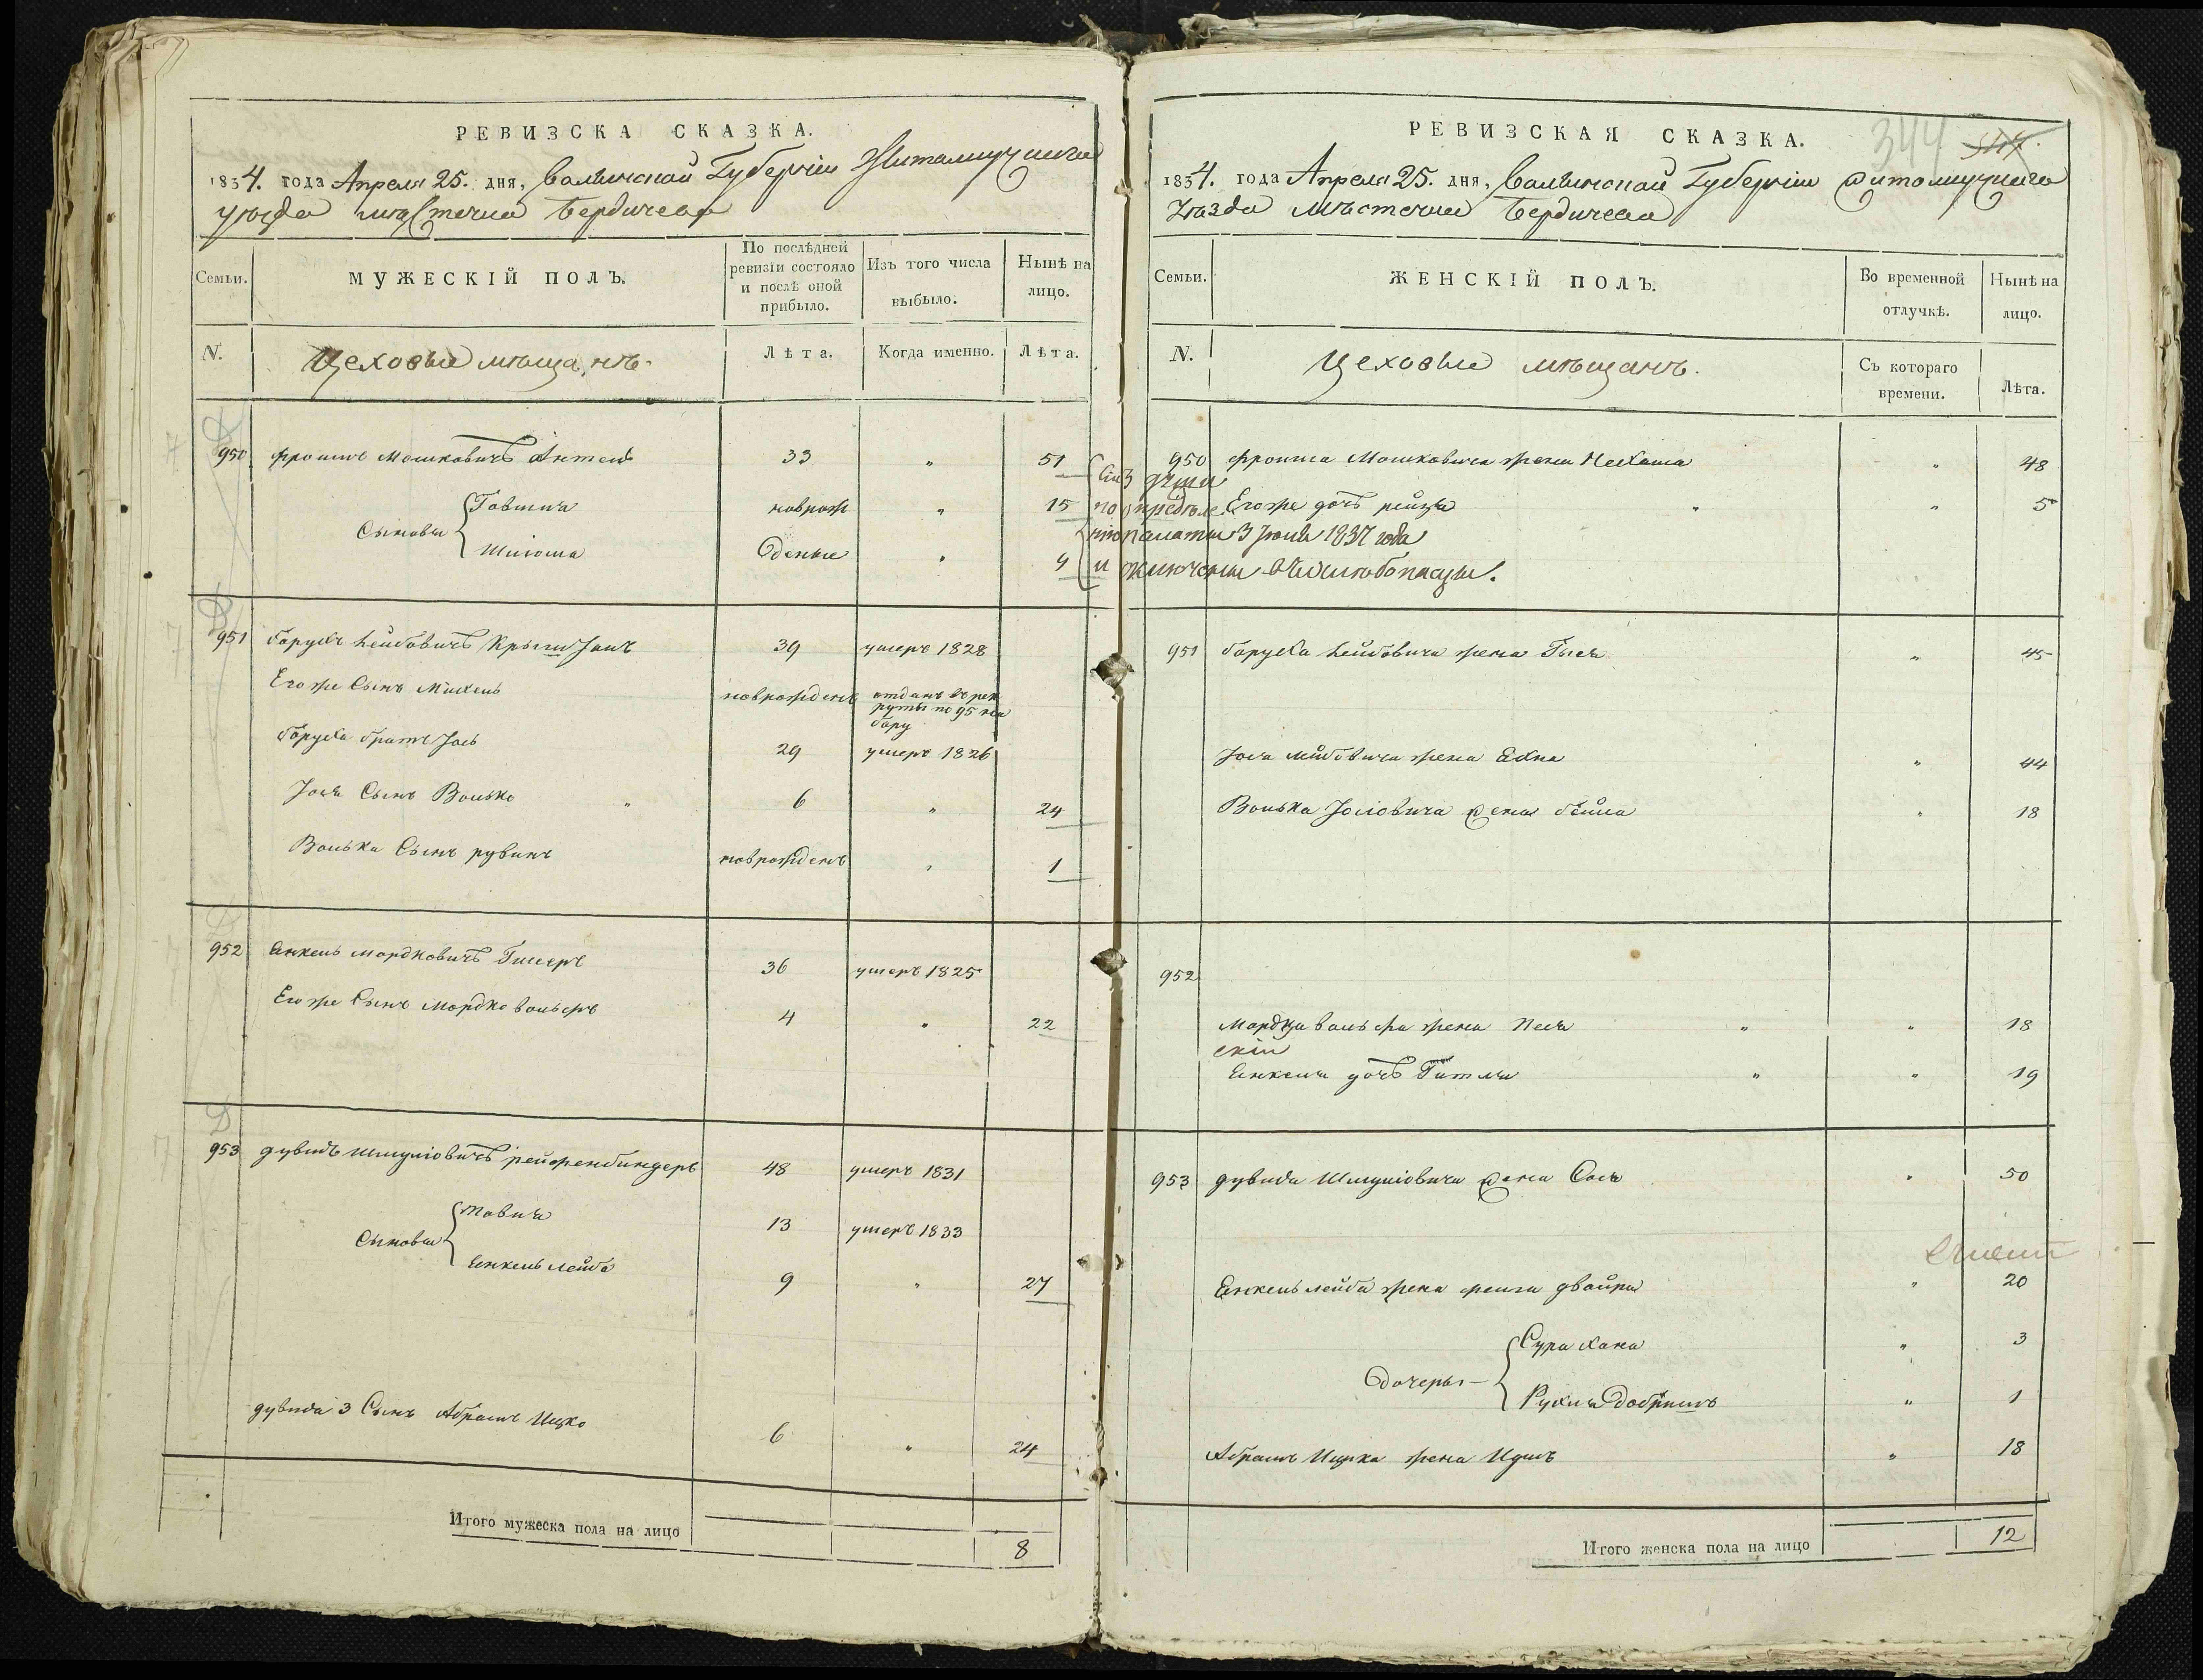 РЕВИЗСКА СКАЗКА.
1834. года Апреля 25. дня, Волынской Губернии Житомирскаго
уезда местечка Бердичева
Семьи.
МУЖЕСКІЙ ПОЛЪ.
По послѣдней ревизіи состояло и послѣ оной прибыло.
Изъ того числа выбыло.
Нынѣ на лицо.
N.
Цеховые мѣщанъ
Лѣта.
Когда именно.
Лѣта.
950 Фроимъ Мошковичъ 33 " 51
Сыновья Товшия новрож 15
Шлиома дены " 4
951 Борухъ Лейбовичъ 39 умеръ 1828
Его же Сынъ Михель новрожденъ отданъ въ рек
руты по 95 на
бору
Боруха братъ Іось 29 умеръ 1826
Іося Сынъ Волько " 6 " 24
Волька Сынъ рувинъ новрожденъ " 1
952 Янкель Мордковичъ 36 умеръ 1825
Его же Сынъ Мордко вольфъ 4 " 22
953 дувидъ Шмуліовичъ рейфенбиндеръ 48 умеръ 1831
Сыновья Товия 13 умеръ 1833
Янкель лейба 9 " 27
дувида 3 Сынъ Абрамъ Ицко 6 " 24
Итого мужеска пола на лицо 8
РЕВИЗСКАЯ СКАЗКА.
344
1834. года Апреля 25. дня, Волынской Губерніи Житомирскаго
Уезда Мѣстечка Бердичева
Семьи.
ЖЕНСКІЙ ПОЛЪ.
Во временной отлучкѣ.
Нынѣ на лицо.
N.
Цеховые мѣщанъ.
Съ котораго времени.
Лѣта.
950 Фроима Мошковича жена Нехама " 48
Сіи 3 души
Его же дочь рейзя " " 5
по опредѣле
нію палаты 3 Іюня 1837 года
951 Боруха Лейбовича жена Гися " 45
Іося лейбовича жена Ехна " 44
Волька Іосіовича жена бейла " 18
952
Мордка вольфа жена Песя " " 18
Янкеля дочь Гитля " " 19
953 дувида Шмуліовича жена Сося " 50
Янкель лейба жена фейга двойра " 20
дочеры Сура хана " 3
Рухля Добришъ " 1
Абрамъ Ицка жена " 18
Итого женска пола на лицо 12